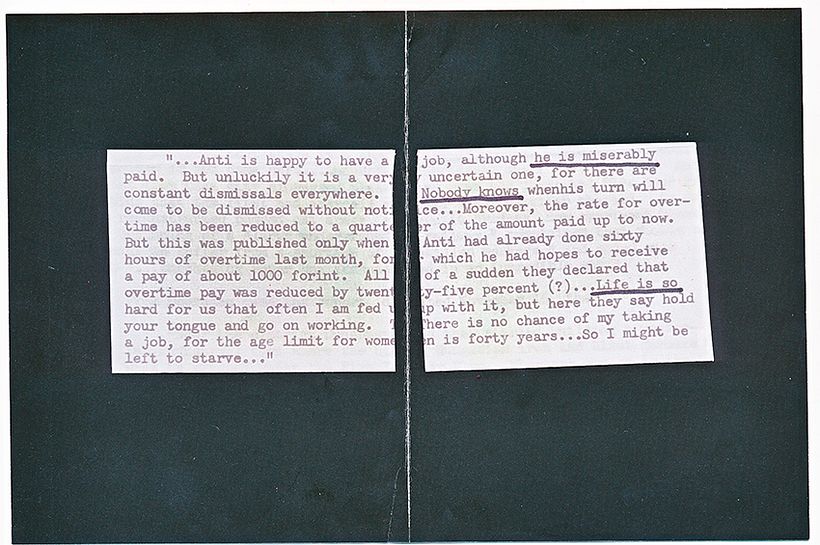 "...Anti is happy to have a job, although he is miserably
paid. But unluckily it is a very uncertain one, for there are
constant dismissals everywhere. Nobody knows whenhis turn will
come to be dismissed without notice...Moreover, the rate for over-
time has been reduced to a quarter of the amount paid up to now.
But this was published only when Anti had already done sixty
hours of overtime last month, for which he had hopes to receive
a pay of about 1000 forint. All of a sudden they declared that
overtime pay was reduced by twenty-five percent (?)...Life is so
hard for us that often I am fed up with it, but here they say hold
your tongue and go on working. There is no chance of my taking
a job, for the age limit for women is forty years...So I might be
left to starve..."